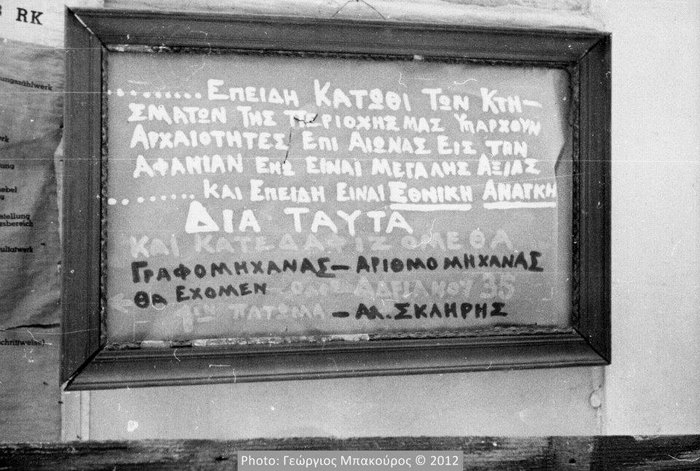 RK
......... ΕΠΕΙΔΗ ΚΑΤΩΘΙ ΤΩΝ ΚΤΗ-
ΣΜΑΤΩΝ ΤΗΣ ΠΕΡΙΟΧΗΣ ΜΑΣ ΥΠΑΡΧΟΥΝ
ΑΡΧΑΙΟΤΗΤΕΣ ΕΠΙ ΑΙΩΝΑΣ ΕΙΣ ΤΗΝ
ΑΦΑΝΙΑΝ ΕΝΩ ΕΙΝΑΙ ΜΕΓΑΛΗΣ ΑΞΙΑΣ
......... ΚΑΙ ΕΠΕΙΔΗ ΕΙΝΑΙ ΕΘΝΙΚΗ ΑΝΑΓΚΗ
ΔΙΑ ΤΑΥΤΑ
ΚΑΙ ΚΑΤΕΔΑΦΙΖΟΜΕΘΑ
ΓΡΑΦΟΜΗΧΑΝΑΣ – ΑΡΙΘΜΟΜΗΧΑΝΑΣ
ΘΑ ΕΧΟΜΕΝ ΟΔΟΣ ΑΔΡΙΑΝΟΥ 35
1ΟΝ ΠΑΤΩΜΑ – ΑΛ. ΣΚΛΗΡΗΣ
Photo: Γεώργιος Μπακούρος © 2012